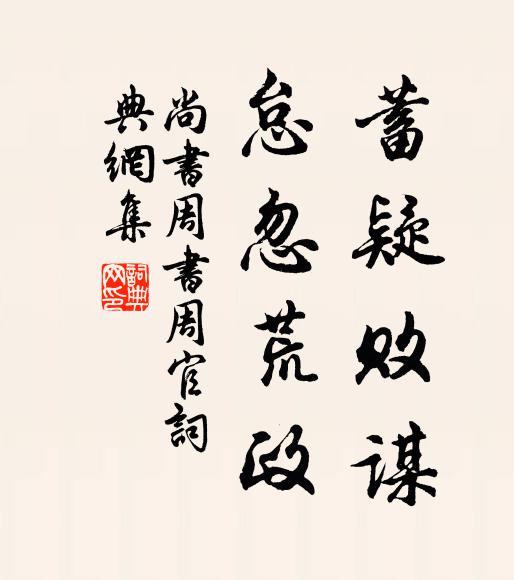 蓄疑败谋
怠忽荒政
尚書周書周官詞
典網集
詞典網印